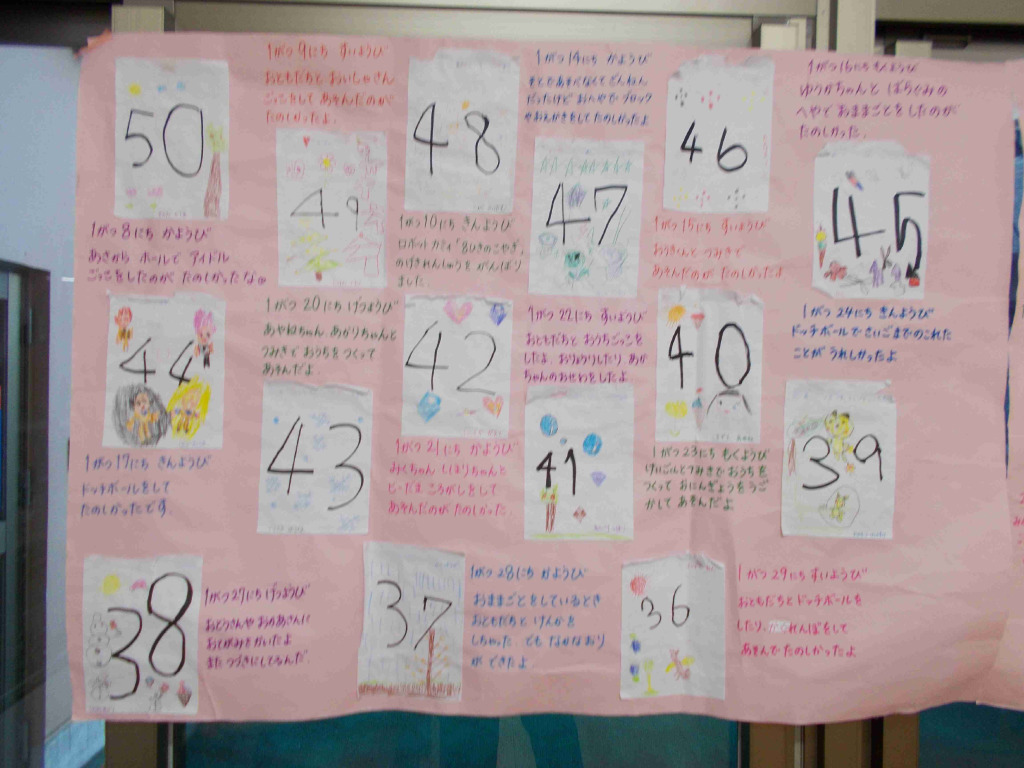 50
1がつ8にち かようび
あさから ホールで アイドル
ごっこをしたのが たのしかったなぁ
1がつ9にち すいようび
おともだちと おいしゃさん
ごっこをして あそんだのが
たのしかったよ.
49
48
1がつ10にち きんようび
ロボットカミィ「8ひきのこやぎ」
のげきれんしゅうを がんばり
ました.
1がつ14にち かようび
そとであそべなくて ざんねん
だったけど おへやで ブロック
やおえかきをして たのしかったよ
47
46
1がつ15にち すいようび
おうきくんと つみきで
あそんだのが たのしかったよ
1がつ16にち もくようび
ゆうかちゃんと ばらぐみの
へやで おままごとを したのが
たのしかった.
45
44
1がつ17にち きんようび
ドッチボールをして
たのしかったです.
1がつ 20にち げつようび
あやねちゃん あかりちゃんと
つみきで おうちを つくって
あそんだよ.
43
42
1がつ 21にち かようび
みくちゃん しほりちゃんと
ビーだま ころがしをして
あそんだのが たのしかった.
1がつ 22にち すいようび
おともだちと おうちごっこを
したよ. おりょうりしたり あか
ちゃんのおせわをしたよ
41
40
1がつ 23にち もくようび
けいごんとつみきで おうちを
つくって おにんぎょうを うご
かして あそんだよ
1がつ 24にち きんようび
ドッチボールで さいごまでのこれた
ことが うれしかったよ
39
38
1がつ27にち げつようび
おとうさんや おかあさんに
おてがみを かいたよ
また つづきにしてるんだ.
37
1がつ 28にち かようび
おままごとをしているとき
おともだちと けんかを
しちゃった. でも なかなおり
が できたよ
36
1がつ 29にち すいようび
おともだちと ドッチボールを
したり. かくれんぼをして
あそんで たのしかったよ